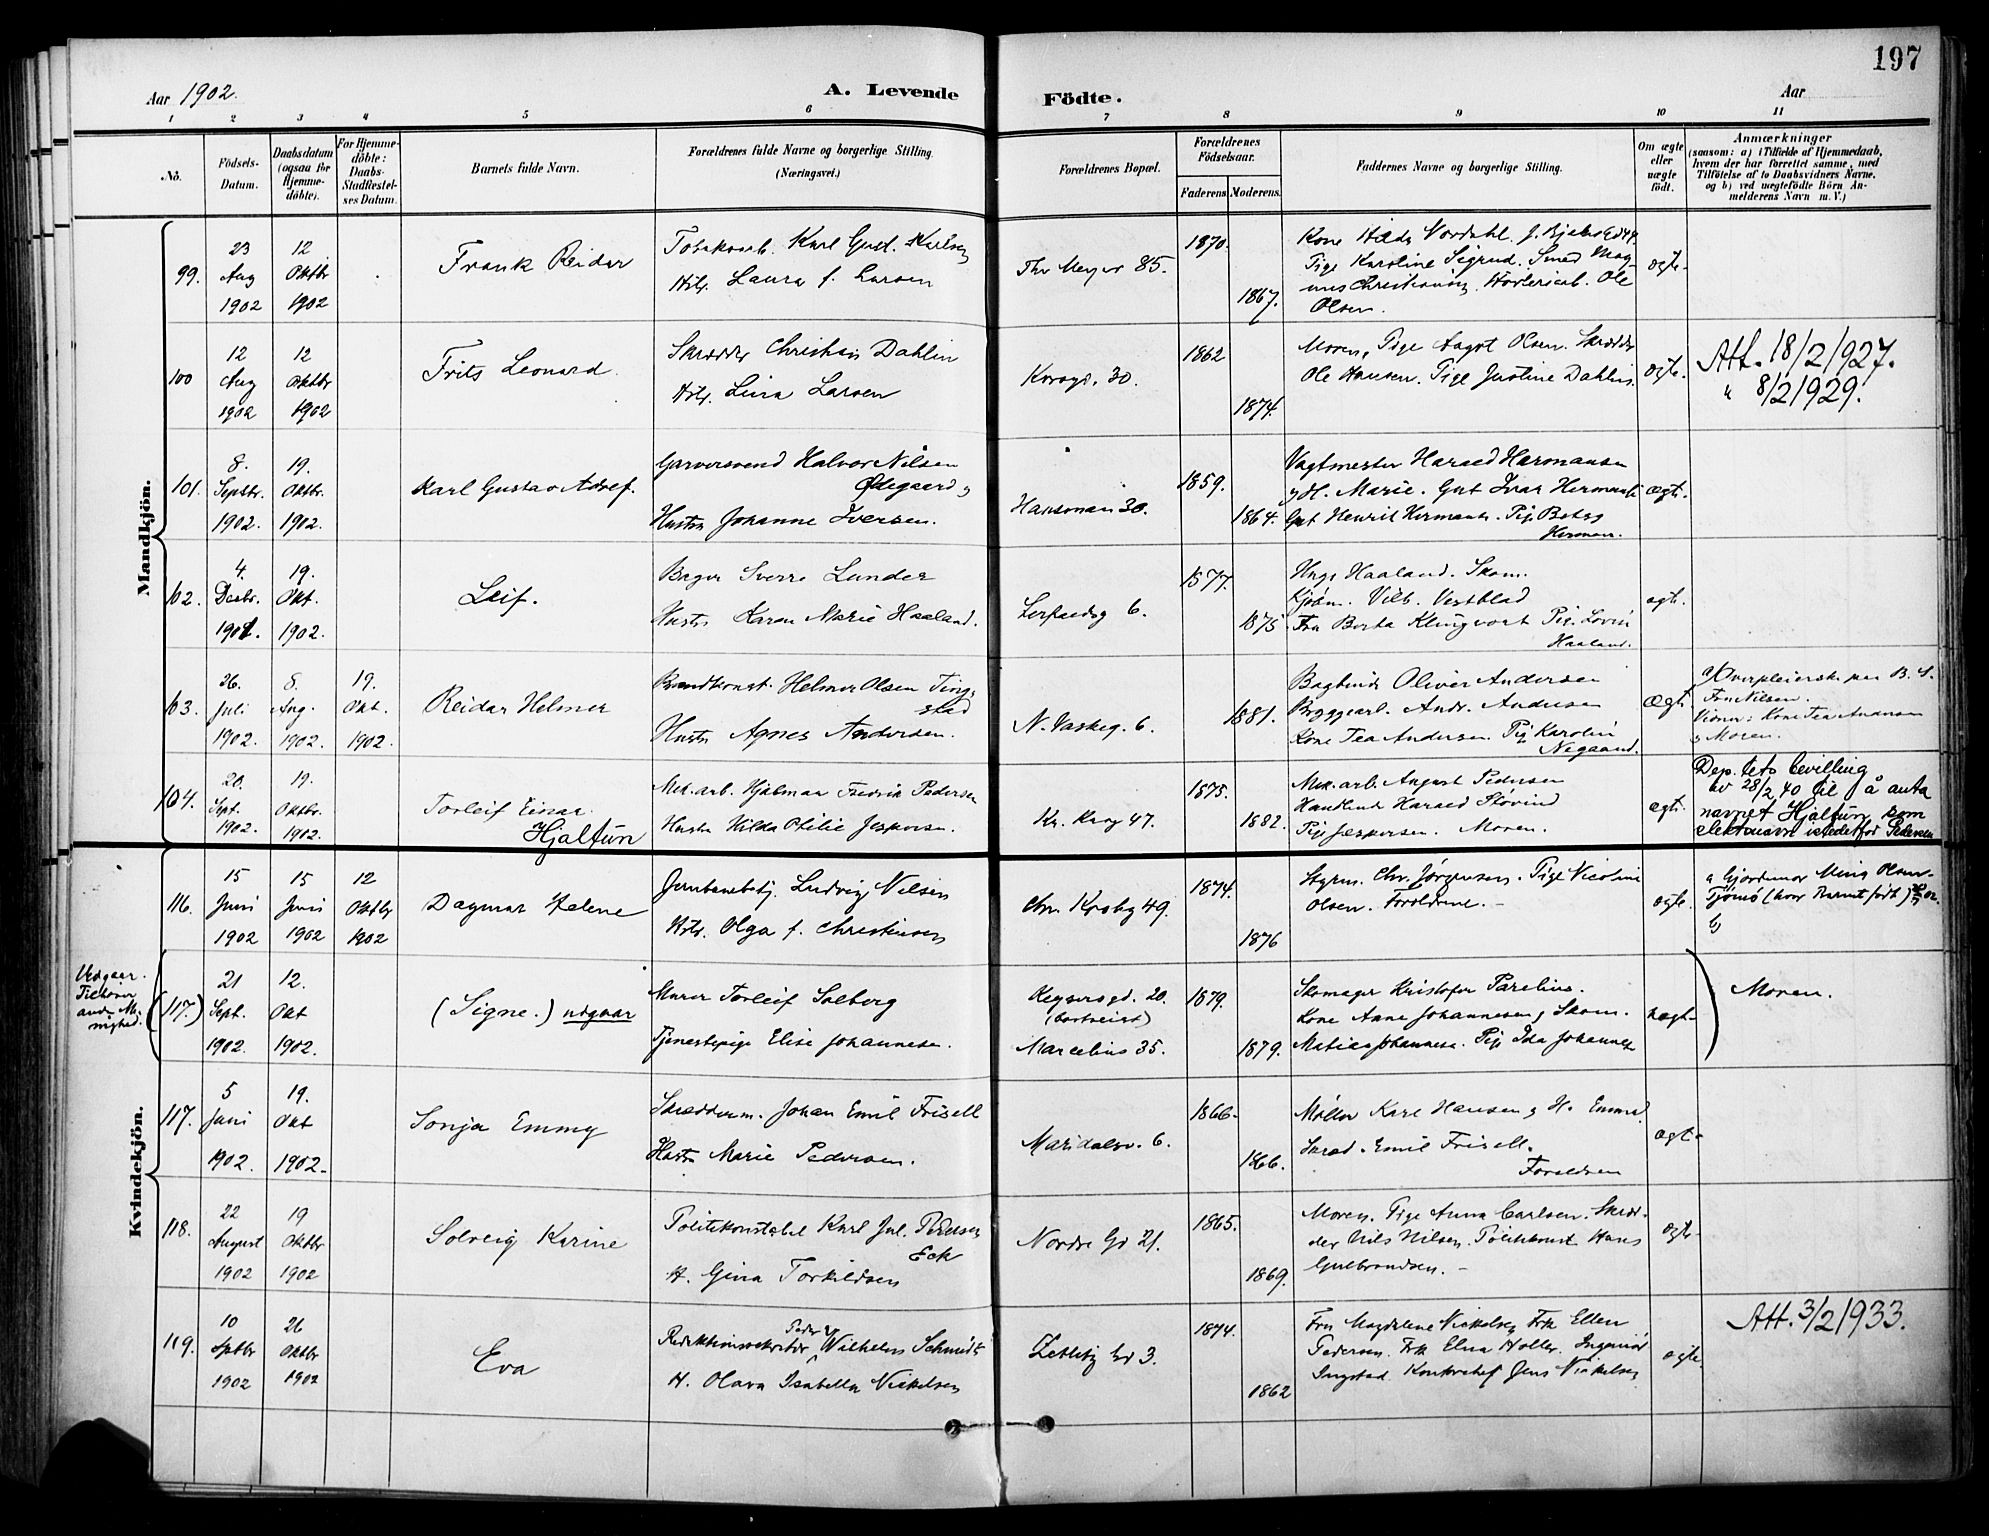 197
Aar 1902.
A. Levende Födte.
Aar
1 2 3 4 5 6 7 8 9 10 11
No.
Födsels-Datum.
Daabsdatum (ogsaa for Hjemme-döbte).
For Hjemme-döbte: Daabs-Stadfæstel-ses Datum.
Barnets fulde Navn.
Forældrenes fulde Navne og borgerlige Stilling.
(Næringsvei.)
Forældrenes Bopæl.
Forældrenes Födselsaar.
Faderens. Moderens.
Faddernes Navne og borgerlige Stilling.
Om ægte eller uægte födt.
Anmærkninger
(saasom: a) i Tilfælde af Hjemmedaab,
hvem der har forrettet samme, med
Tilföielse af to Daabsvidners Navne.
og b) ved uægtefödte Börn An-
melderens Navn m. V.)
Mandkjön.
99.
23 Aug 1902
12 Oktbr 1902
Frank Reidar
Karl Gust. Karlsen
Laura f. Larsen
Thv Meyer 85.
1870.
1867.
Kone Hilda Nordahl.
Pige Karoline Sigrud. Smed Mag-
nus Christiansen. Ole
Olsen.
ægte.
100
12 Aug 1902
12 Oktbr 1902
Frits Leonard.
Skrædder Christian Dahlin
Hstr. Lina Larsen
Korsgd. 30.
1862
1874.
Moren, Pige Aagot Olsen. Skrædder
Ole Hansen. Pige Justine Dahlin.
ægte.
Att. 18/2 1927.
" 8/2 1929.
101.
8. Septbr. 1902.
19. Oktbr. 1902.
Karl Gustav Adolf.
Garversvend Halvor Nilsen
Ødegaard og
Hustru Johanne Iversen.
Hansman 30.
1859.
1864.
Vagtmester Harald Hermansen
og H. Marie. Gut Ivar Hermans.
Gut Henrik Hermans. Pige
Herman.
ægte.
102.
4. 1901.
19. Okt. 1902.
Leif.
Bager Sverre Lunder
Hustru Karen Marie Haaland.
6.
1877.
1875
Haaland. Skom.
Vilh. Vestblad
Fru Berta Klingvort Pige
Haaland.
ægte.
103.
26. Juli 1902.
8. Aug. 1902.
19. Okt. 1902.
Reidar Helmer
Brandkonst. Helmer Olsen Ting-
stad
Hustru Agnes Andersen.
N. Vaskeg. 6.
1881.
Bogbinder Oliver Andersen
Bryggearb. Andr. Andersen
Kone Tea Andersen. Pige Karoline
Nygaard.
ægte.
a) Overpleierske paa B. S.
Frk Nilsen.
Vidner: Kone Tea Andersen
og Moren.
104.
20. Sept. 1902.
19. Oktbr. 1902.
Torleif Einar.
Hjaltun
Mek. arb. Hjalmar Fredrik Pedersen
Hustru Hilda Otilie Jespersen.
Kr. Krog 47.
1875.
1882.
Mek. arb. August Pedersen
Harald Støvind
Pige Jespersen. Moren.
ægte.
Dep. bevilling
av 28/2 40 til å anta
navnet Hjaltun som
slektsnavn istedetfor Pedersen
Kvindekjön.
116.
15 Juni 1902
15 Juni 1902
12 Oktbr 1902
Dagmar Helene
Jernbanebetj. Ludvig Nilsen
Hstr. Olga f. Christensen
Chr. Krohg 49.
1874.
1876
Styrm. Chr. Jørgensen. Pige Nicoline
Olsen. Forældrene. -
ægte.
a Gjordemor Mina Olsen
Tjømø (hvor Barnet født)
Udgaar.
Tilhører
anden Me-
nighed.
(117.)
21 Sept. 1902.
12. Okt 1902.
(Signe.) udgaar
Murer Torleif Solberg
Tjenestepige Elise Johannesen.
Keysersgd. 20.
(bortreist)
Marcelius 35.
1879.
1879.
Skomager Kristofer Parelius.
Kone Anne Johannesen, Skom.
Matias Johannesen. Pige Ida Johannes
uægte
Moren.
117.
5 Juni 1902.
19. Okt 1902.
Sonja Emmy
Skræderm. Johan Emil Frisell
Hustru Marie Pedersen.
Maridalsv. 6.
1866.
1866.
Møller Karl Hansen og H. Emma
Skræd. Emil Frisell.
Forældrene
ægte
118.
22 August 1902
19 Oktbr 1902
Solveig Karine
Politikonstabel Karl Jul. Pedersen
Eek
H. Gina Torkildsen
Nordre Gd 21.
1865.
1869.
Moren. Pige Anna Carlsen. Skræd-
der Nils Nilsen. Politikonst Hans
Gulbrandsen. -
ægte
119.
10 Sptbr 1902
26 Oktbr 1902
Eva
Redaktionssekretær Peder Wilhelm Schmidt
H. Olava Isabella Nickelsen
Zetlitz Gd 3.
1874.
1862
Fru Magdalene Nickelsen Frk Ellen
Pedersen. Frk Elna Holter. Ingeniør
Ingstad. Kontorchef Jens Nickelsen
ægte
Att. 3/2 1933.